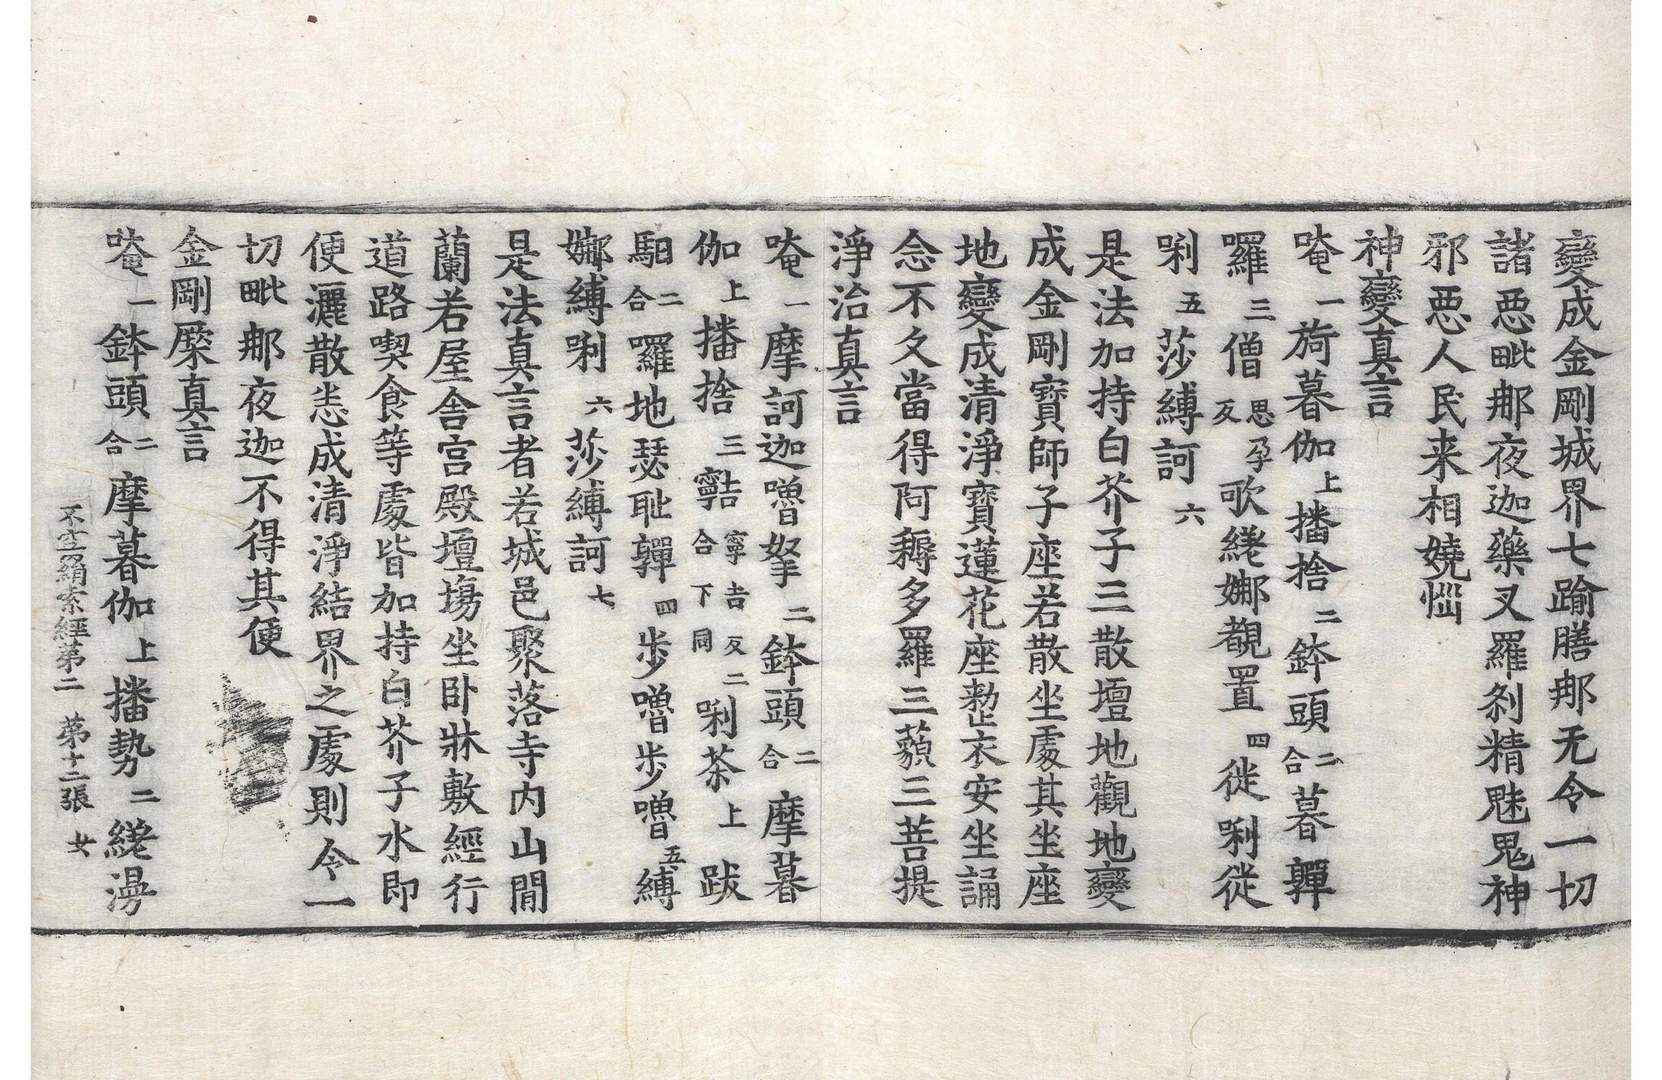 變成金剛城界七踰膳那无令一切
諸惡毗那夜迦藥叉羅剎精魅鬼神
邪惡人民来相嬈惱
神變真言
唵一旖暮伽上播捨二鉢頭二合暮
羅三僧思孕反歌継娜覩置四徙唎徙
唎五莎縛訶六
是法加持白芥子三散壇地觀地變
成金剛寶師子座若散坐處其坐座
地變成清淨寶蓮花座敷上衣安坐誦
念不久當得阿耨多羅三藐三菩提
淨治真言
唵一摩訶迦嚕拏二鉢頭二合摩暮
伽上播捨三寧吉反二合下同唎茶上跛
馹二合羅地瑟耻四步嚕步嚕五縛
娜縛唎六莎縛訶七
是法真言者若城邑聚落寺内山間
蘭若屋舍宮殿壇塲坐卧牀敷經行
道路喫食等處皆加持白芥子水即
便灑散恙成清淨結界之處則令一
切毗那夜迦不得其便
金剛橛真言
唵一鉢頭二合摩暮伽上播勢二継澷
不空羂索經第二 第十二張 女